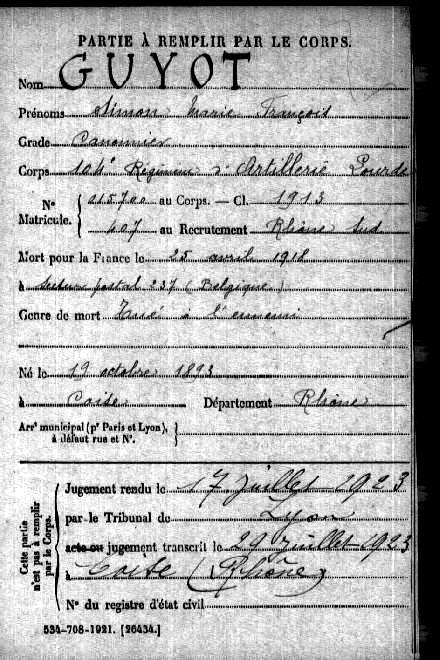 PARTIE À REMPLIR PAR LE CORPS.
Nom GUYOT
Prénoms Simon Marie François
Grade Canonnier
Corps 104e Régiment d'Artillerie Lourde
N° Matricule. { 015.700 au Corps. — Cl. 1913
407 au Recrutement Rhône Sud
Mort pour la France le 25 avril 1918
à secteur postal 237 (Belgique)
Genre de mort Tué à l'ennemi
Né le 19 octobre 1893
à Coise Département Rhône
Arrt municipal (pr Paris et Lyon), à défaut rue et N°. }
Cette partie n'est pas à remplir par le Corps.
Jugement rendu le 17 Juillet 1923
par le Tribunal de Lyon
acte ou jugement transcrit le 29 Juillet 1923
à Coise (Rhône)
N° du registre d'état civil
534-708-1921. [26434.]